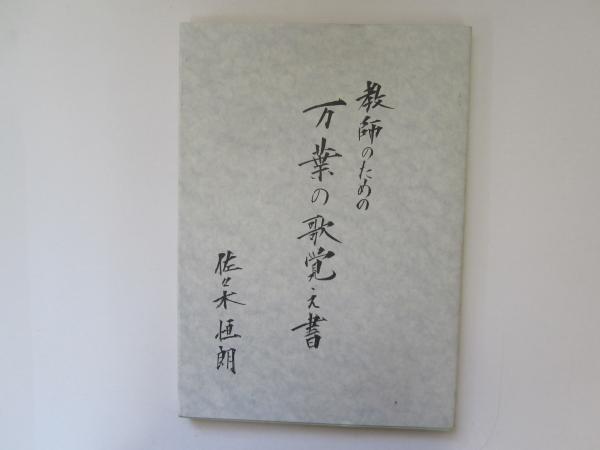 教師のための
万葉の歌覚え書
佐々木恒朗